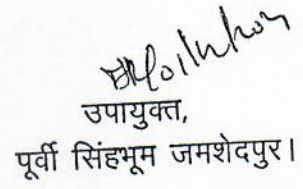 उपायुक्त,
पूर्वी सिंहभूम जमशेदपुर।